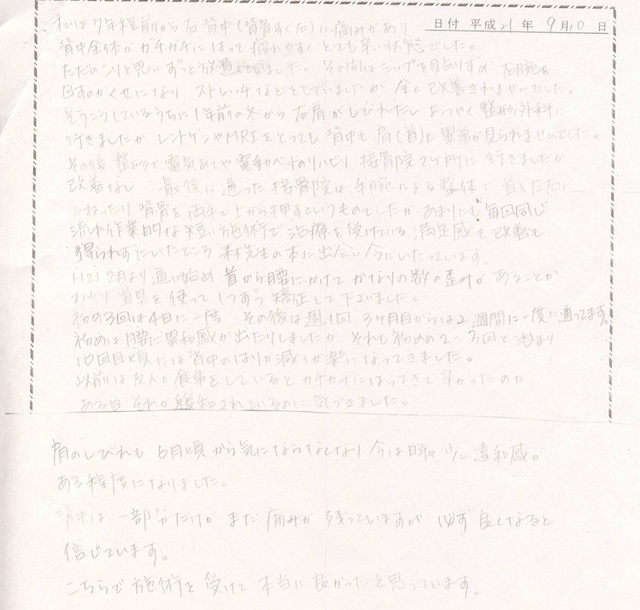 日付 平成21年 9月10日
私は7年程前から右背中(背骨すぐ右)に痛みがあり
背中全体がガチガチにはって疲れやすくとても辛い状態でした。
ただのこりと思いずっと放置していました。その間はシップを貼り 右腕を
回すのがくせになり ストレッチなどをしていましたが全く改善されませんでした。
そうこうしているうちに1年前の冬から右肩がしびれだし ようやく整形外科に
行きましたがレントゲンやMRIをとっても背中も肩(首)も異常が見られませんでした。
その後 整形で電気あてや電動ベッドのリハビリ 接骨院2ヶ所に行きましたが
改善なし 最後に通った接骨院は 手腕による整体で 首を左右に
ひねったり 背骨を両手で上から押すというものでしたが あまりにも毎回同じ
流れ作業的な短い施術で治療を受けている満足感も改善も
得られずにいたところ 先生の本に出会い今にいたっています。
H21 2月より通い始め 首から腰にかけてかなりの数の歪みがあることが
わかり 道具を使って1つずつ矯正して下さいました。
初め3回は4日に一度 その後は週1回 3ヶ月目からは2週間に一度通ってます。
初めは腰に違和感が出たりしましたが それも初めの2、3回で治まり
10回目頃には背中のはりが減り楽になってきました。
以前は友人と食事をしているとガチガチにはってきて辛かったのが
ある日 それが緩和されているのに気づきました。
肩のしびれも 6月頃から気にならなくなり 今は時々少し違和感が
ある程度になりました。
背中は一部分だけがまだ痛みが残っていますが 必ず良くなると
信じています。
こちらで施術を受けて本当に良かったと思っています。